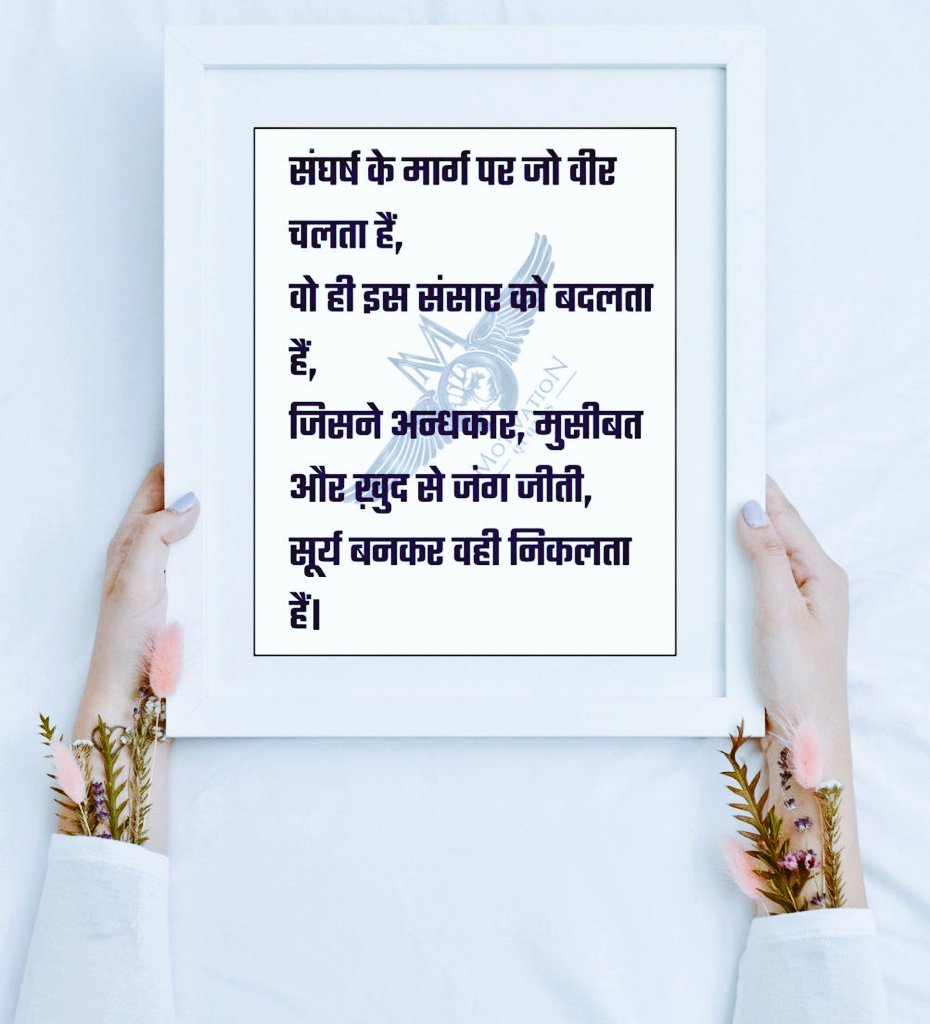 संघर्ष के मार्ग पर जो वीर
चलता हैं,
वो ही इस संसार को बदलता
हैं,
जिसने अन्धकार, मुसीबत
और ख़ुद से जंग जीती,
सूर्य बनकर वही निकलता
हैं।
M
MOTIVATION